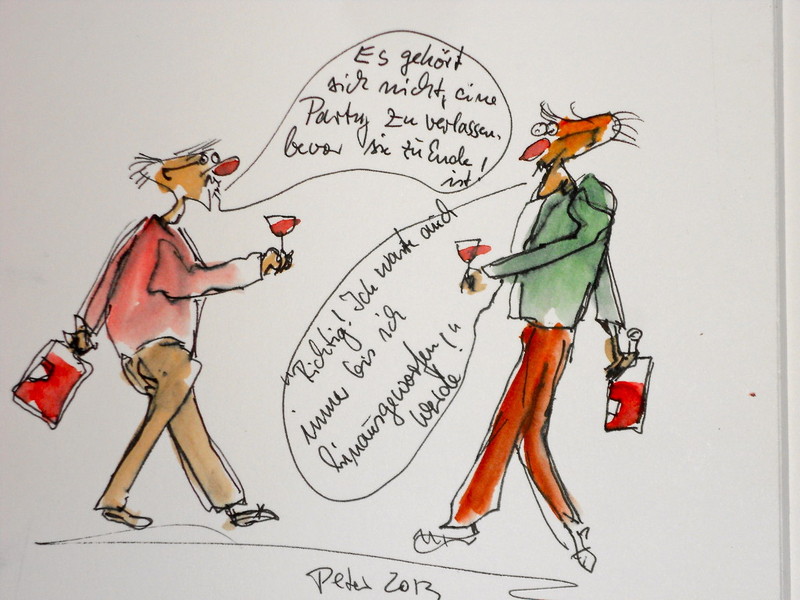 Es gehört
sich nicht, eine
Party zu verlassen,
bevor sie zu Ende
ist!
"Richtig! Ich warte auch
immer bis ich
hinausgeworfen
werde!"
Peter 2013